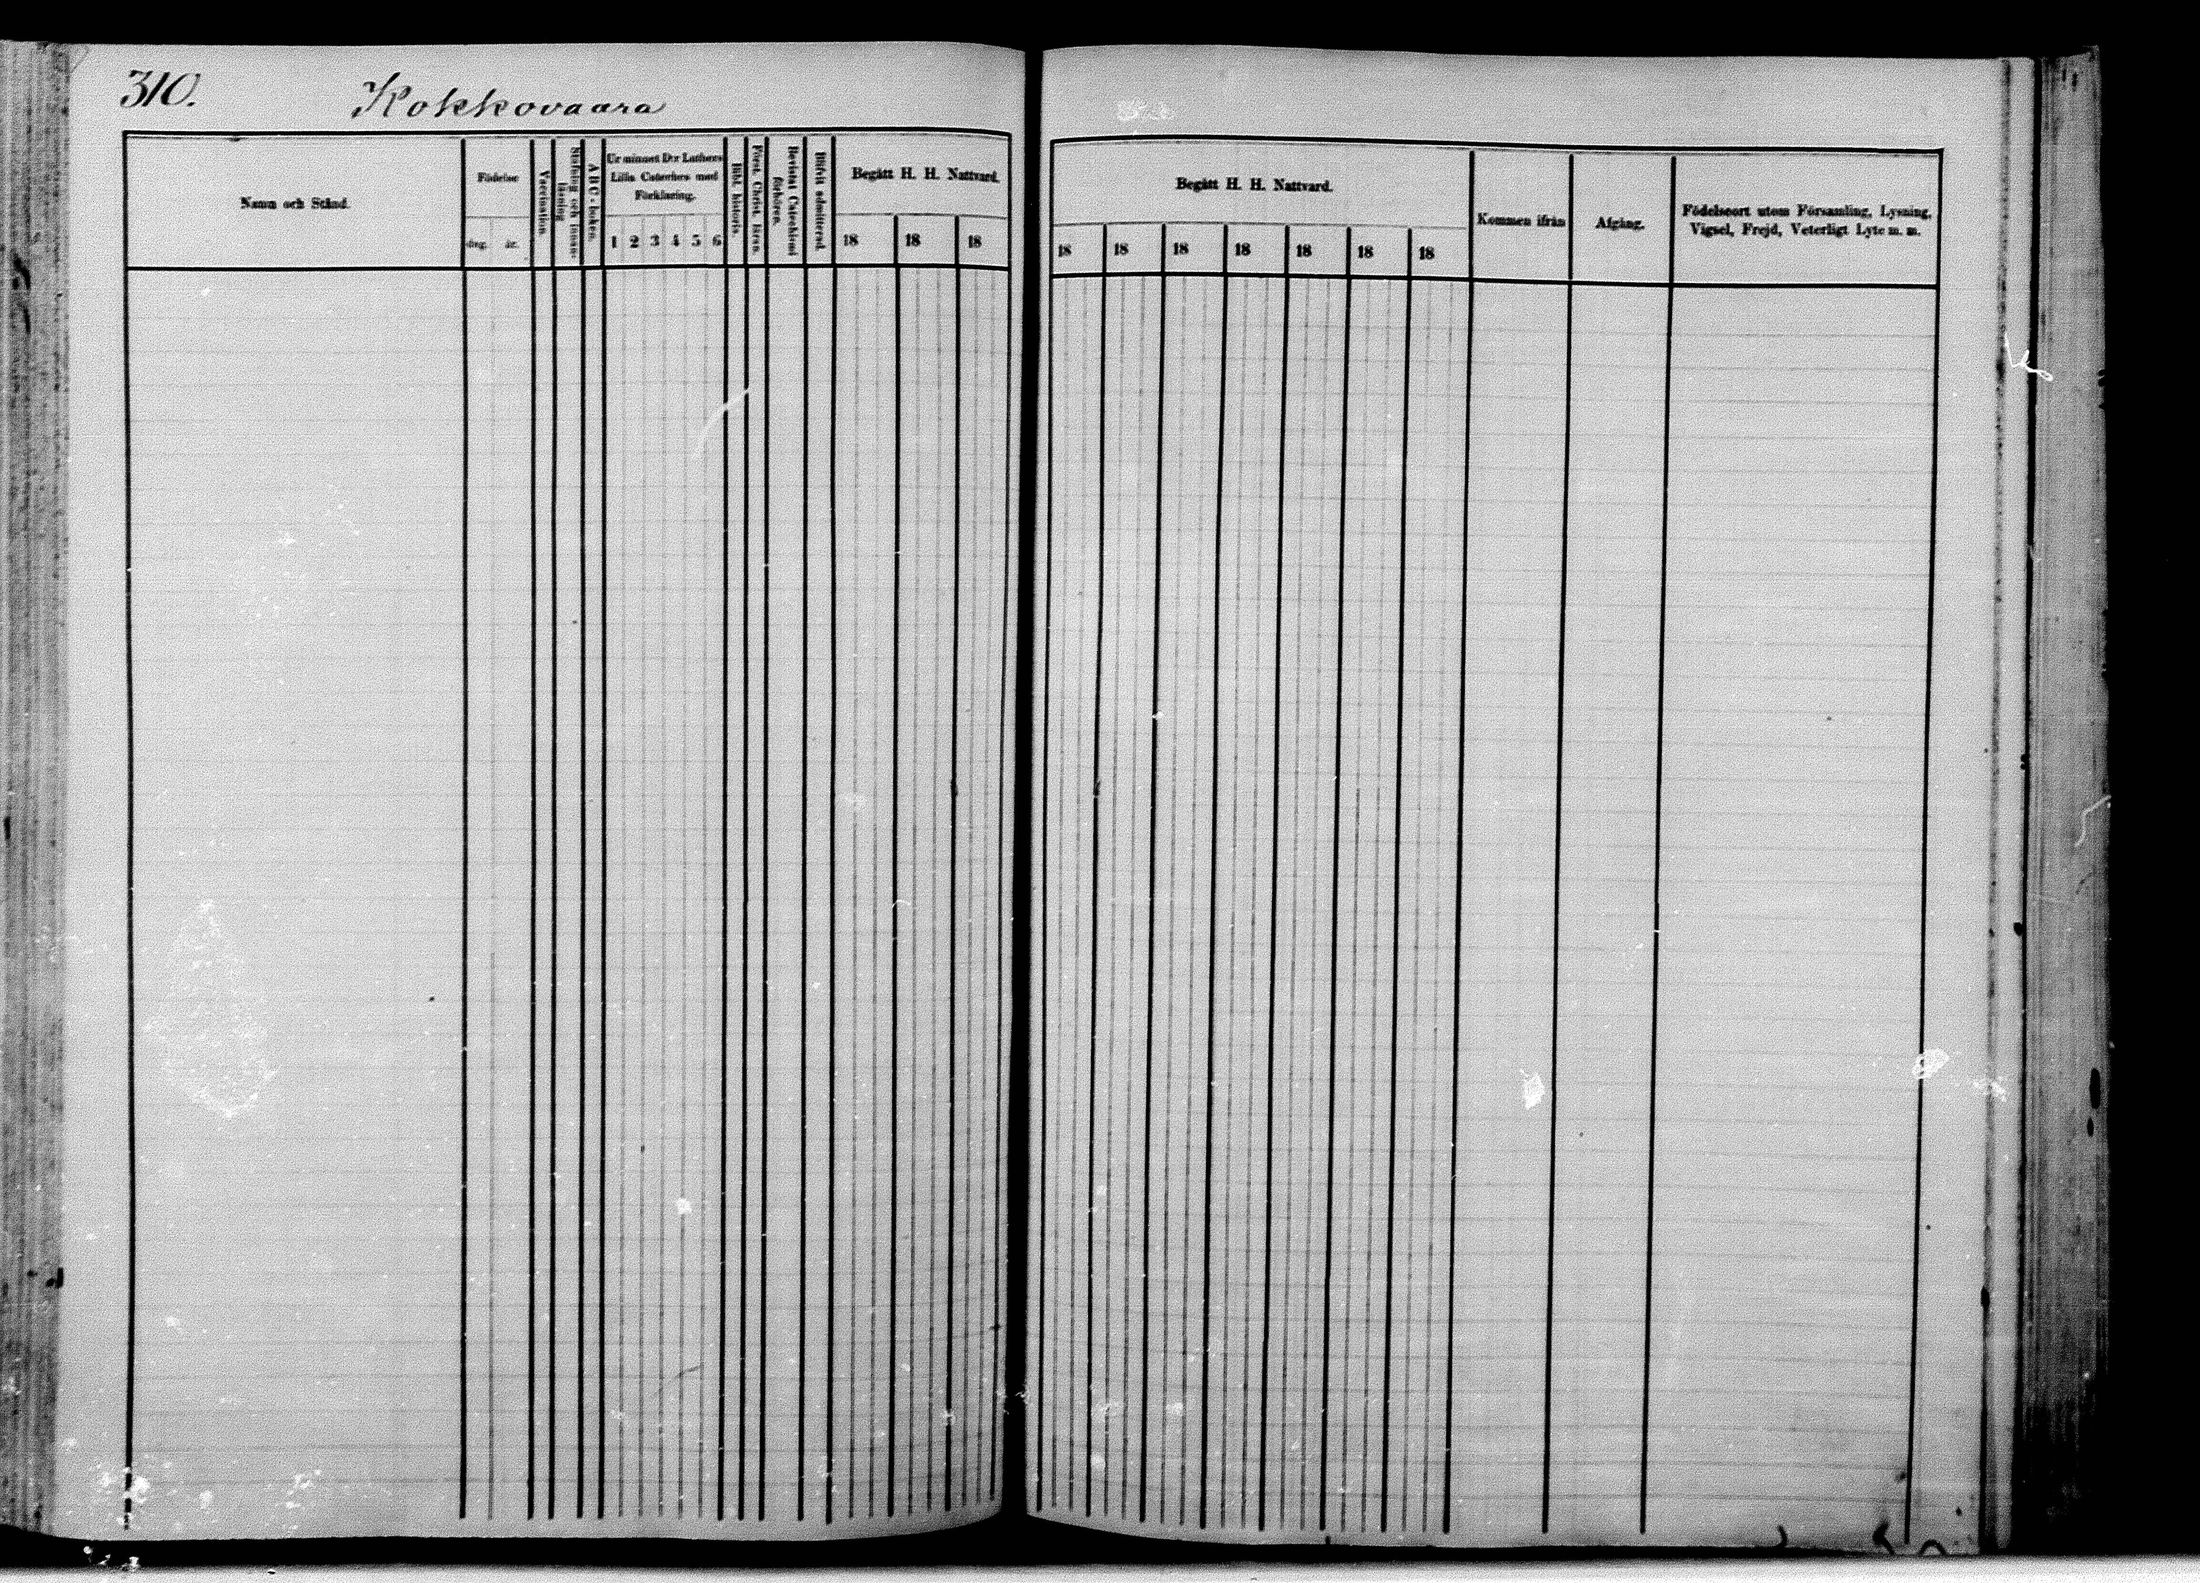 310.
Kokkovaara
Namn och Stånd.
Födelse
dag. år.
Vaccination.
Stafning och innanläsning
A B C - boken.
Ur minnet D:r Luthers
Lilla Cateches med
Förklaring.
1 2 3 4 5 6
Bibl. historia.
Först. Christ. läran.
Bevistat Catechismi
förhören.
Blifvit admitterad.
Begått H. H. Nattvard.
18 18 18
Begått H. H. Nattvard.
18 18 18 18 18 18 18
Kommen ifrån
Afgång.
Födelseort utom Församling, Lysning,
Vigsel, Frejd, Veterligt Lyte m. m.